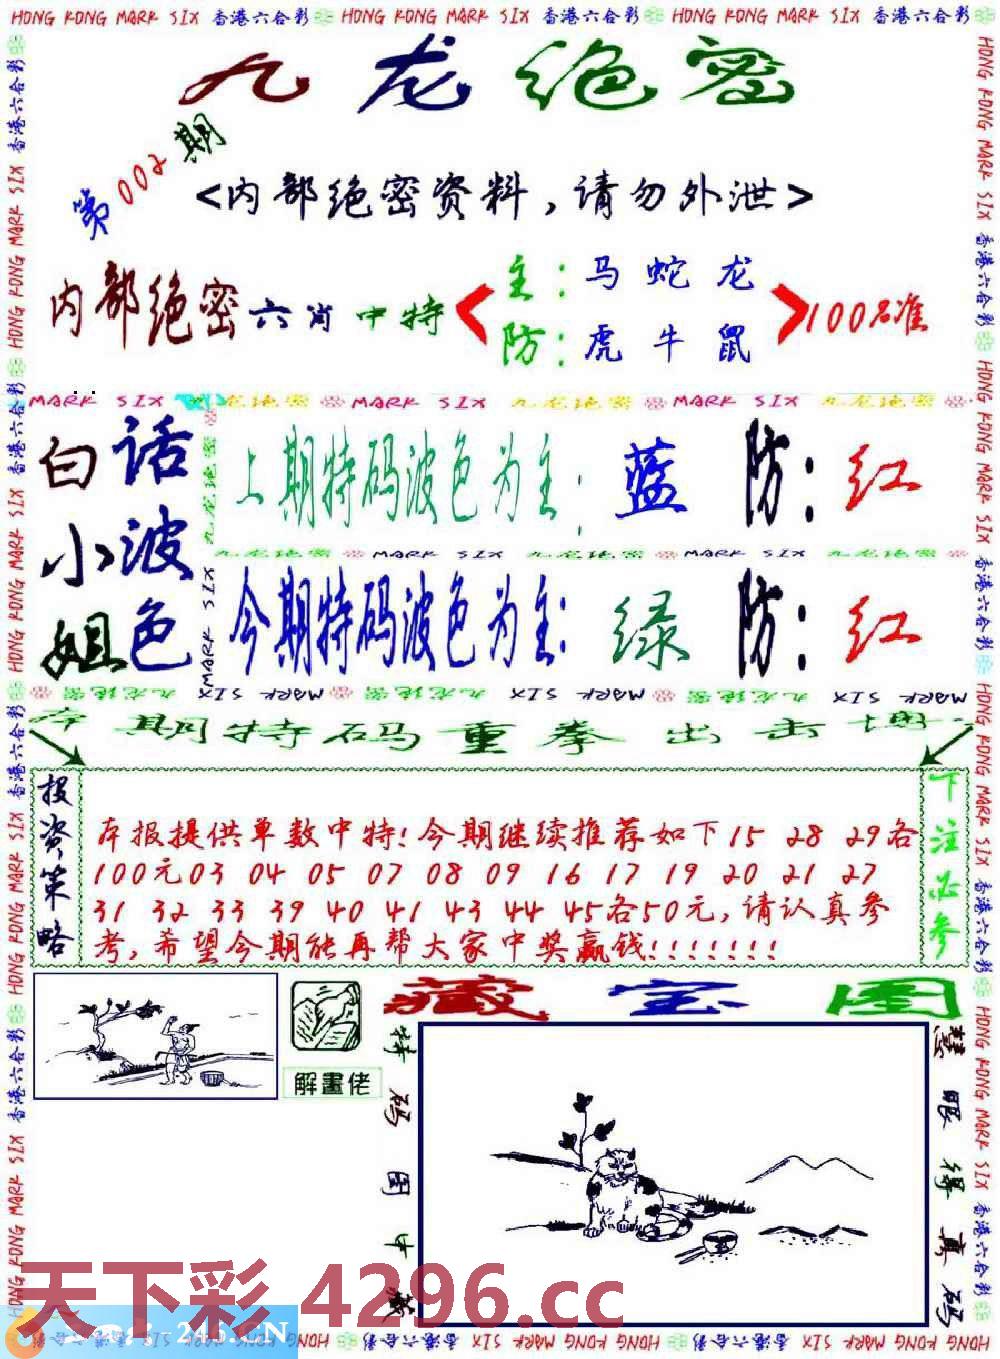 HONG KONG MARK SIX 香港六合彩 HONG KONG MARK SIX 香港六合彩 HONG KONG MARK SIX 香港六合彩
九龙绝密
第002期
<内部绝密资料,请勿外泄>
内部绝密六肖中特
主:马蛇龙
防:虎牛鼠
100%准
MARK SIX 九龙绝密 MARK SIX 九龙绝密 MARK SIX 九龙绝密
白小姐
话波色
上期特码波色为主:蓝 防:红
九龙绝密 MARK SIX 九龙绝密 MARK SIX 九龙绝密
今期特码波色为主:绿 防:红
本期特码重拳出击
投资策略
本报提供单数中特!今期继续推荐如下15 28 29各
100元03 04 05 07 08 09 16 17 19 20 21 27
31 32 33 39 40 41 43 44 45各50元,请认真参
考,希望今期能再帮大家中奖赢钱!!!!!!!
下注必参
藏宝图
解畫佬
特码图中藏
慧眼得真码
天下彩 4296.cc
246.CN